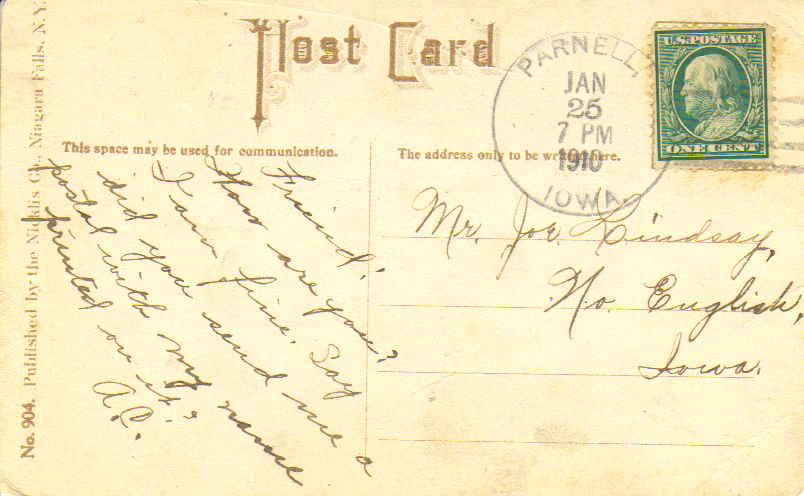 Post Card
PARNELL,
JAN
25
7 PM
1910
IOWA.
U.S. POSTAGE
ONE CENT
This space may be used for communication.
The address only to be written here.
Friend:
How are you?
I am fine. Say
did you send me a
postal with my name
printed on it?
A.C.
Mr. Joe. Lindsay,
No. English,
Iowa.
No. 904. Published by the Nicklis Co., Niagara Falls, N.Y.